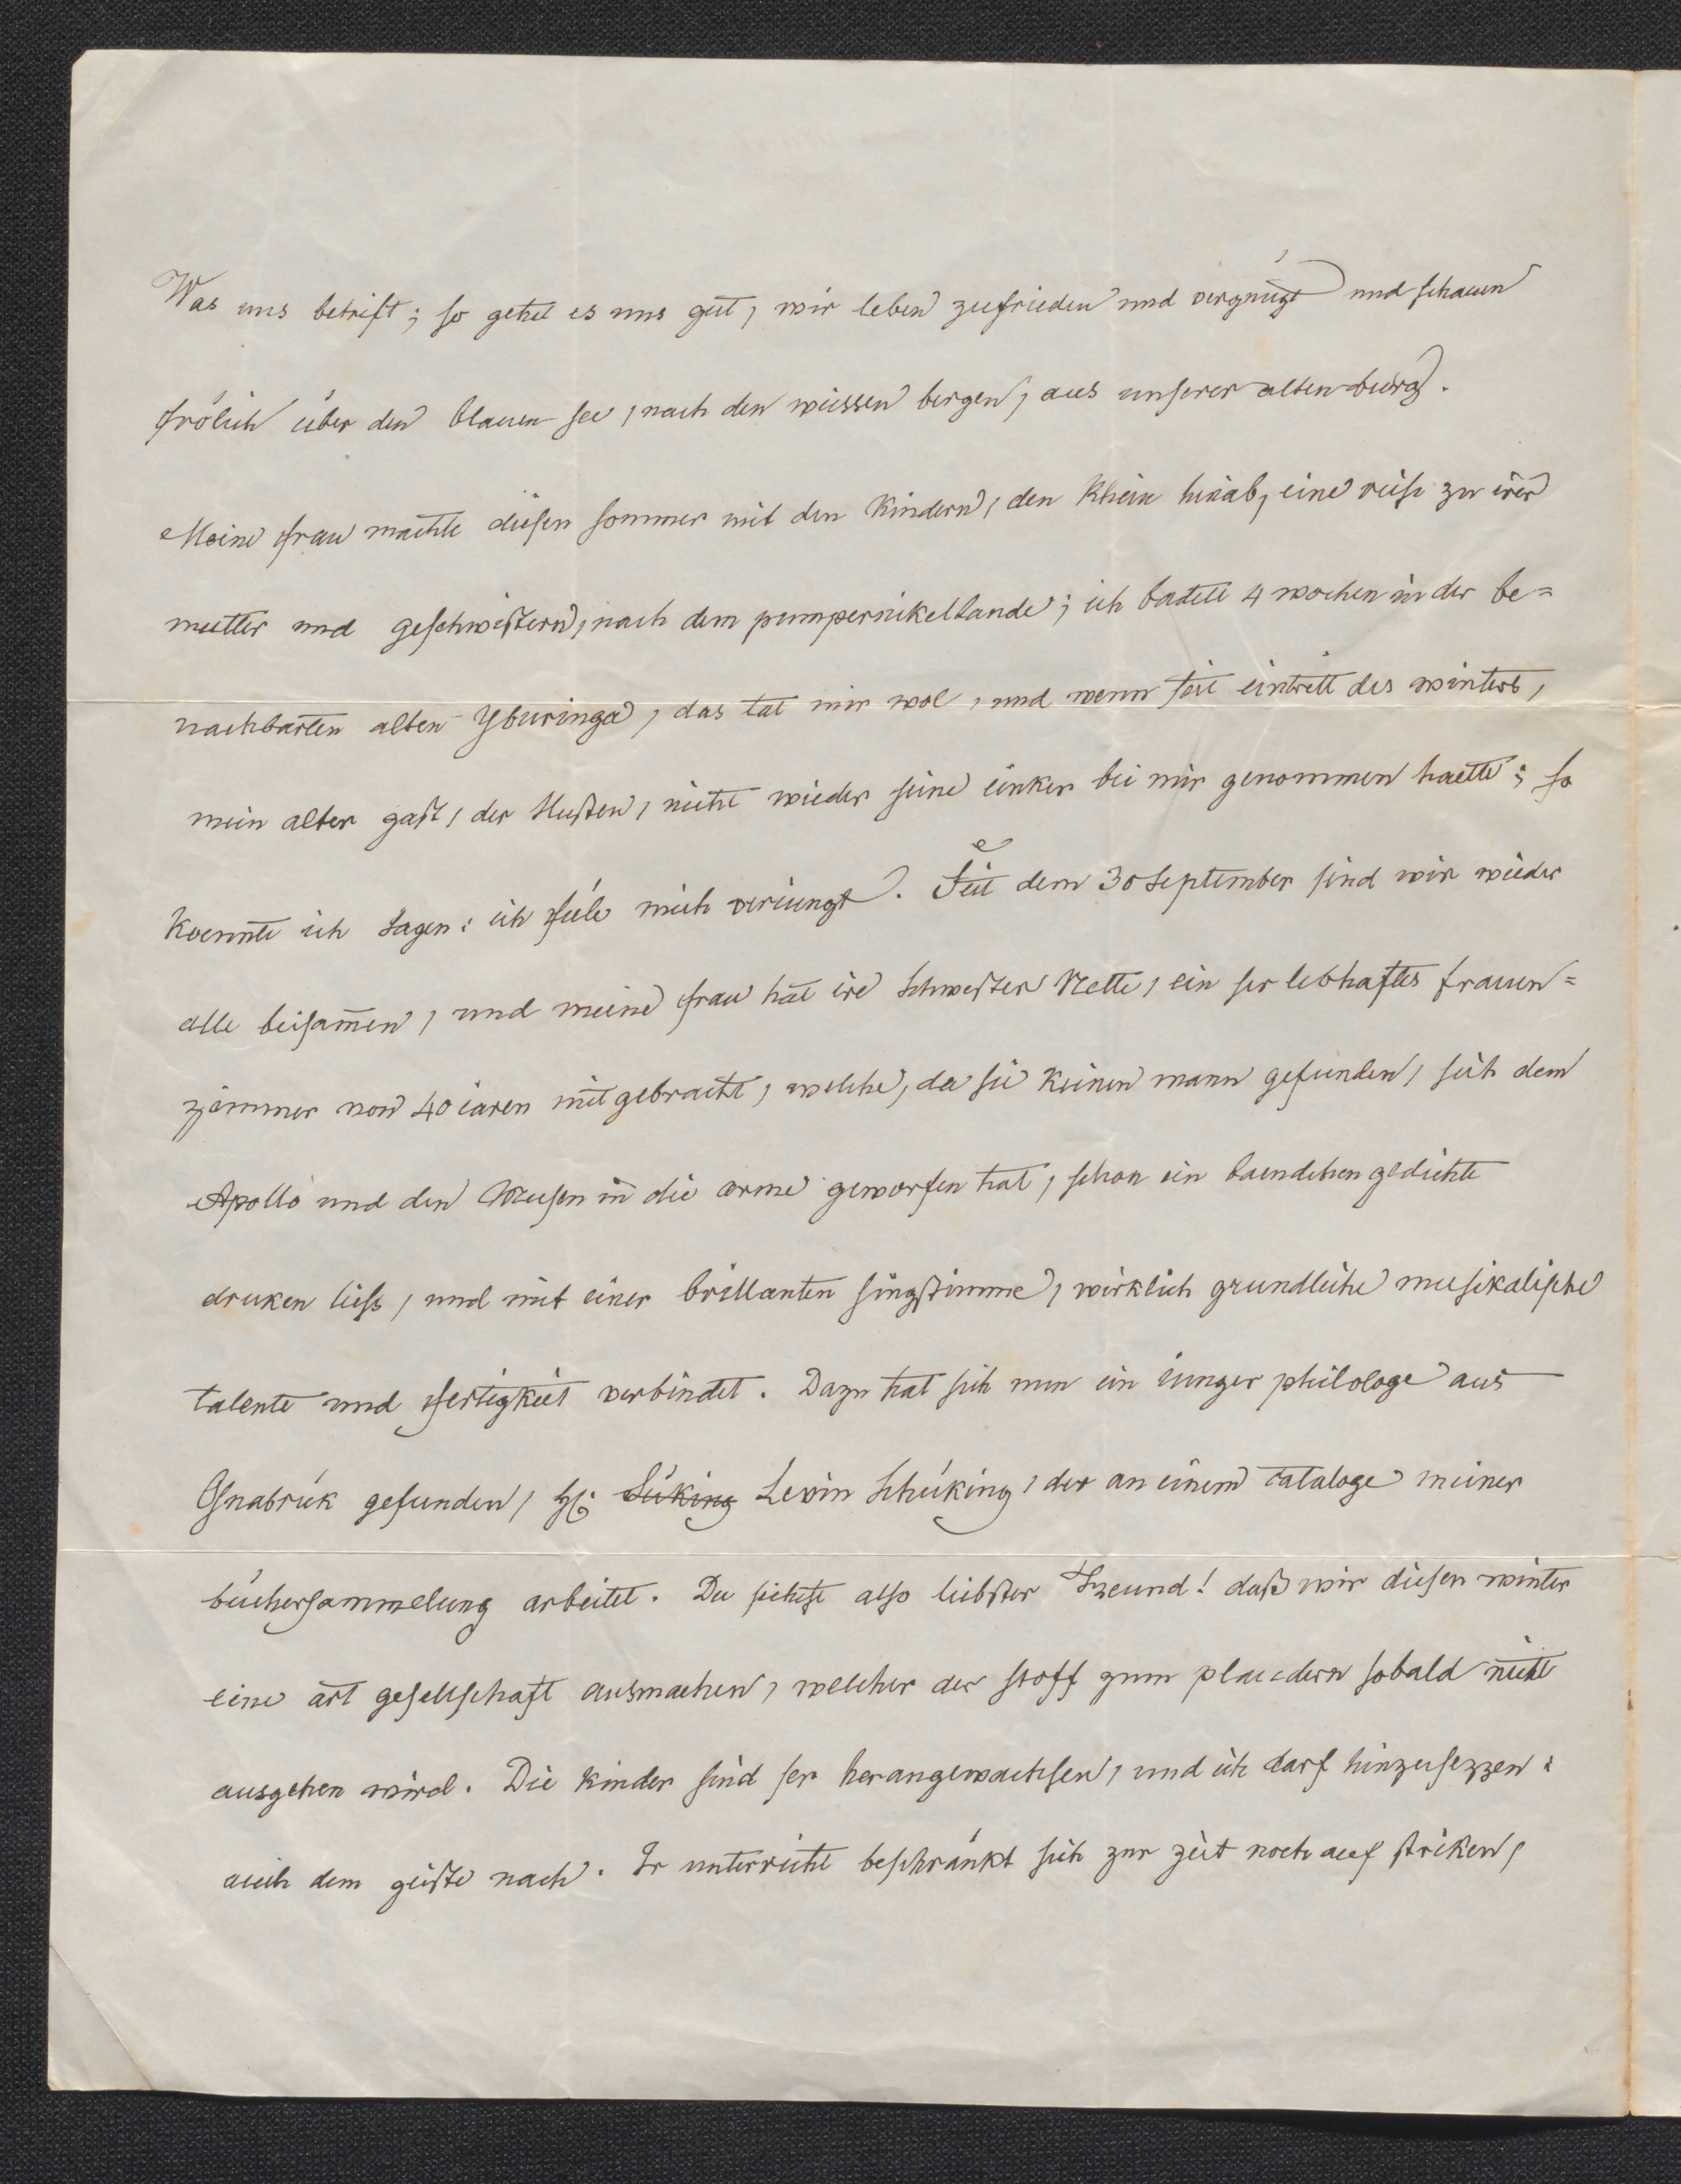 Was uns betrift; so gehet es uns gut, wir leben zufrieden und vergnügt und schauen
frölich über den blauen see, nach den weissen bergen, aus unserer alten burg.
Meine frau machte diesen sommer mit den Kindern, den Rhein hinab, eine reise zu irer
mutter und geschwistern, nach dem pumpernikellande; ich badete 4 wochen in der be=
nachbarten alten Yburinga, das tat mir wol, und wenn seit eintritt des winters,
mein alter gast, der Husten, nicht wieder seine einker bei mir genommen haette; so
koennte ich sagen: ich füle mich veriungt. Seit dem 30 September sind wir wieder
alle beisam̄en, und meine frau hat ire Schwester Nette, ein ser lebhaftes frauen=
zimmer von 40 iaren mitgebracht, welche, da sie keinen mann gefunden, sich dem
Apollo und den Musen in die arme geworfen hat, schon ein baendchen gedichte
druken liess, und mit einer brillanten singstimme, wirklich grundliche musikalische
talente und fertigkeit verbindet. Dazu hat sich nun ein iunger philologe aus
Osnabrük gefunden, H: Süking Levin Schüking, der an einem cataloge meiner
büchersammelung arbeitet. Du siehst also liebster Freund! daß wir diesen winter
eine art gesellschaft ausmachen, welcher der stoff zum plaudern sobald nicht
ausgehen wird. Die kinder sind ser herangewachsen, und ich darf hinzusezzen:
auch dem geiste nach. Ir unterricht beschränkt sich zur zeit noch auf striken,